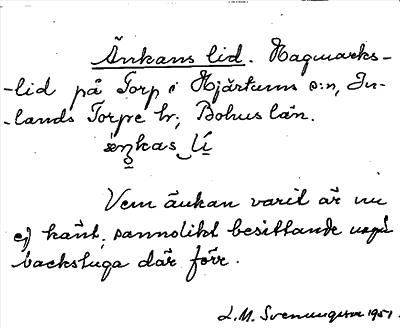 Änkans lid. Hagmarks-
-lid på Torp i Hjärtums s:n, In-
-lands Torpe hr; Bohus län.
Vem änkan varit är nu
ej känt, sannolikt besittande
backstuga där förr.
L. M. Svenungsson 1951.